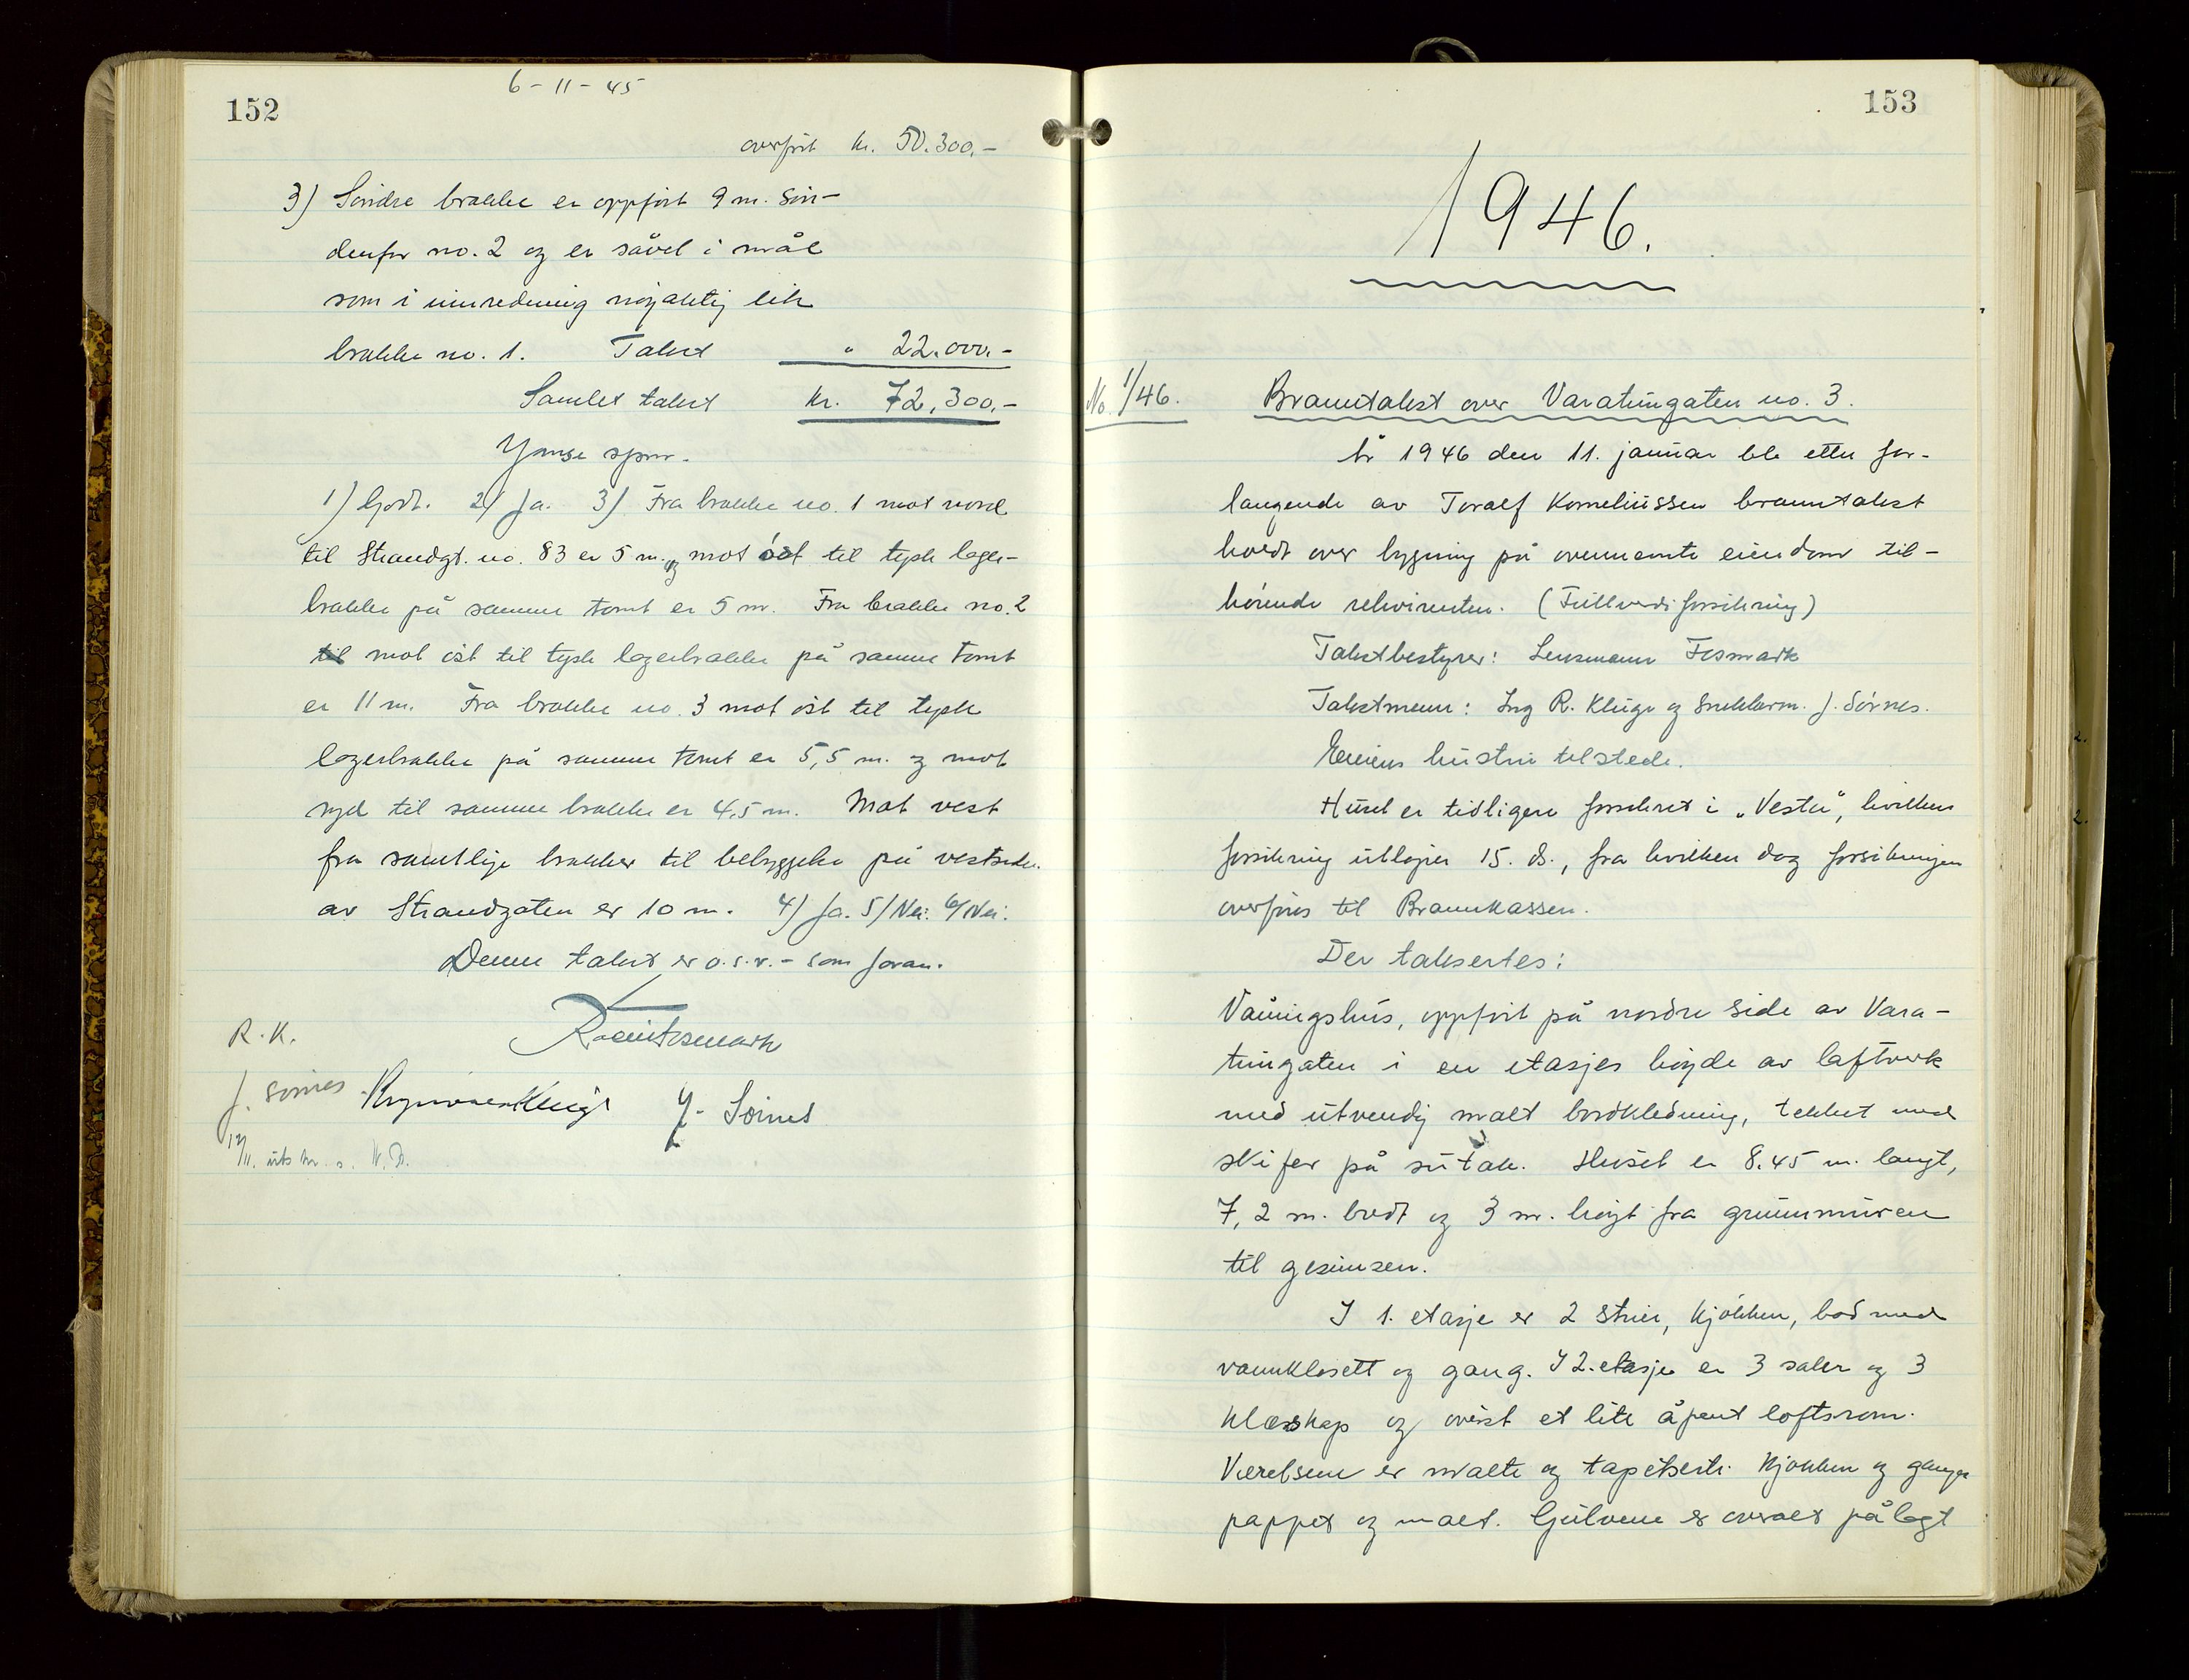 152
6-11-45
overført kr. 50.300,-
3) Söndre brakke er oppfört 9 m. sön-
denfor no. 2 og er såvel i mål
som i innredning nöjaktig lik
brakke no. 1. Takst " 22.000.-
Samlet takst kr. 72,300,-
Ymse spm.
1) Godt. 2) Ja. 3) Fra brakke no. 1 mot nord
til Strandgt. no. 83 er 5 m. og mot öst til tysk lager-
brakke på samme tomt er 5 m. Fra brakke no. 2
til mot öst til tysk lagerbrakke på samme tomt
er 11 m. Fra brakke no. 3 mot öst til tysk
lagerbrakke på samme tomt er 5,5 m. og mot
syd til samme brakke er 4,5 m. Mot vest
fra samtlige brakker til bebyggelse på vestsiden
av Strandgaten er 10 m. 4) Ja. 5/ Nei. 6/ Nei.
Denne takst er o.s.v. - som foran.
R. K.
J. Sörnes
J. Sörnes
12/11. uts kr. s.
153
1946.
No. 1/46.
Branntakst over Varatungaten no. 3.
År 1946 den 11. januar ble etter for-
langende av Toralf Korneliussen branntakst
holdt over bygning på ovennemte eiendom til-
hörende rekvirenten. (Fullverdiforsikring)
Takstbestyrer: Lensmann Fosmark
Takstmenn: Ing R. Kluge og Snekkerm. J. Sörnes.
Eierens hustru tilstede.
Huset er tidligere forsikret i "Vesta", hvilken
forsikring utlöper 15. ds., fra hvilken dag forsikringen
overföres til Brannkassen.
Der taksertes:
Våningshus, oppfört på nordre side av Vara-
tungaten i en etasjes höyde av laftverk
med utvendig malt bordkledning, tekket med
skifer på sutak. Huset er 8.45 m. langt,
7,2 m. bredt og 3 m. höyt fra grunnmuren
til gesimsen.
I 1. etasje er 2 stuer, kjökken, bad med
vannklosett og gang. I 2. etasje er 3 saler og 3
klesskap og överst et lite åpent loftsrom.
Værelsene er malte og tapetserte. Kjökken og ganger
pappet og malt. Gulvene er overalt pålagt